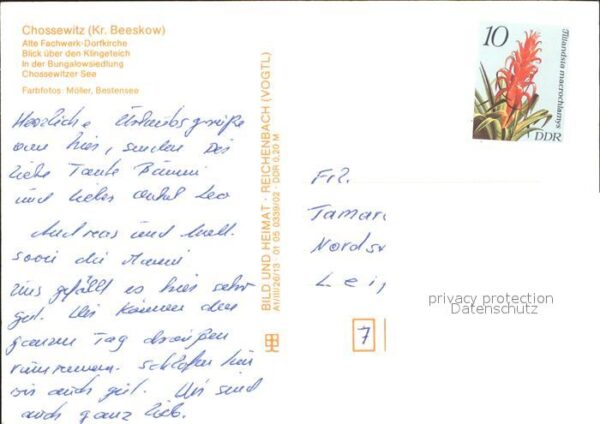 Chossewitz (Kr. Beeskow)
Alte Fachwerk-Dorfkirche
Blick über den Klingeteich
In der Bungalowsiedlung
Chossewitzer See
Farbfotos: Möller, Bestensee
Herzliche Urlaubsgrüße
von hier, senden Dir
liebe Tante Bärmi
und lieber Onkel Leo
Andreas und
sowie die Mammi
Uns gefällt es hier sehr
gut. Wir können den
ganzen Tag draußen
rumrennen. Schlafen tun
wir auch gut. Wir sind
auch ganz lieb.
BILD UND HEIMAT · REICHENBACH (VOGTL)
A1/III/26/13 · 01 05 0339/02 · DDR 0,20 M
10
Tillandsia macrochlamys
DDR
Frl.
Tamar
Nords
Leip
7
privacy protection
Datenschutz